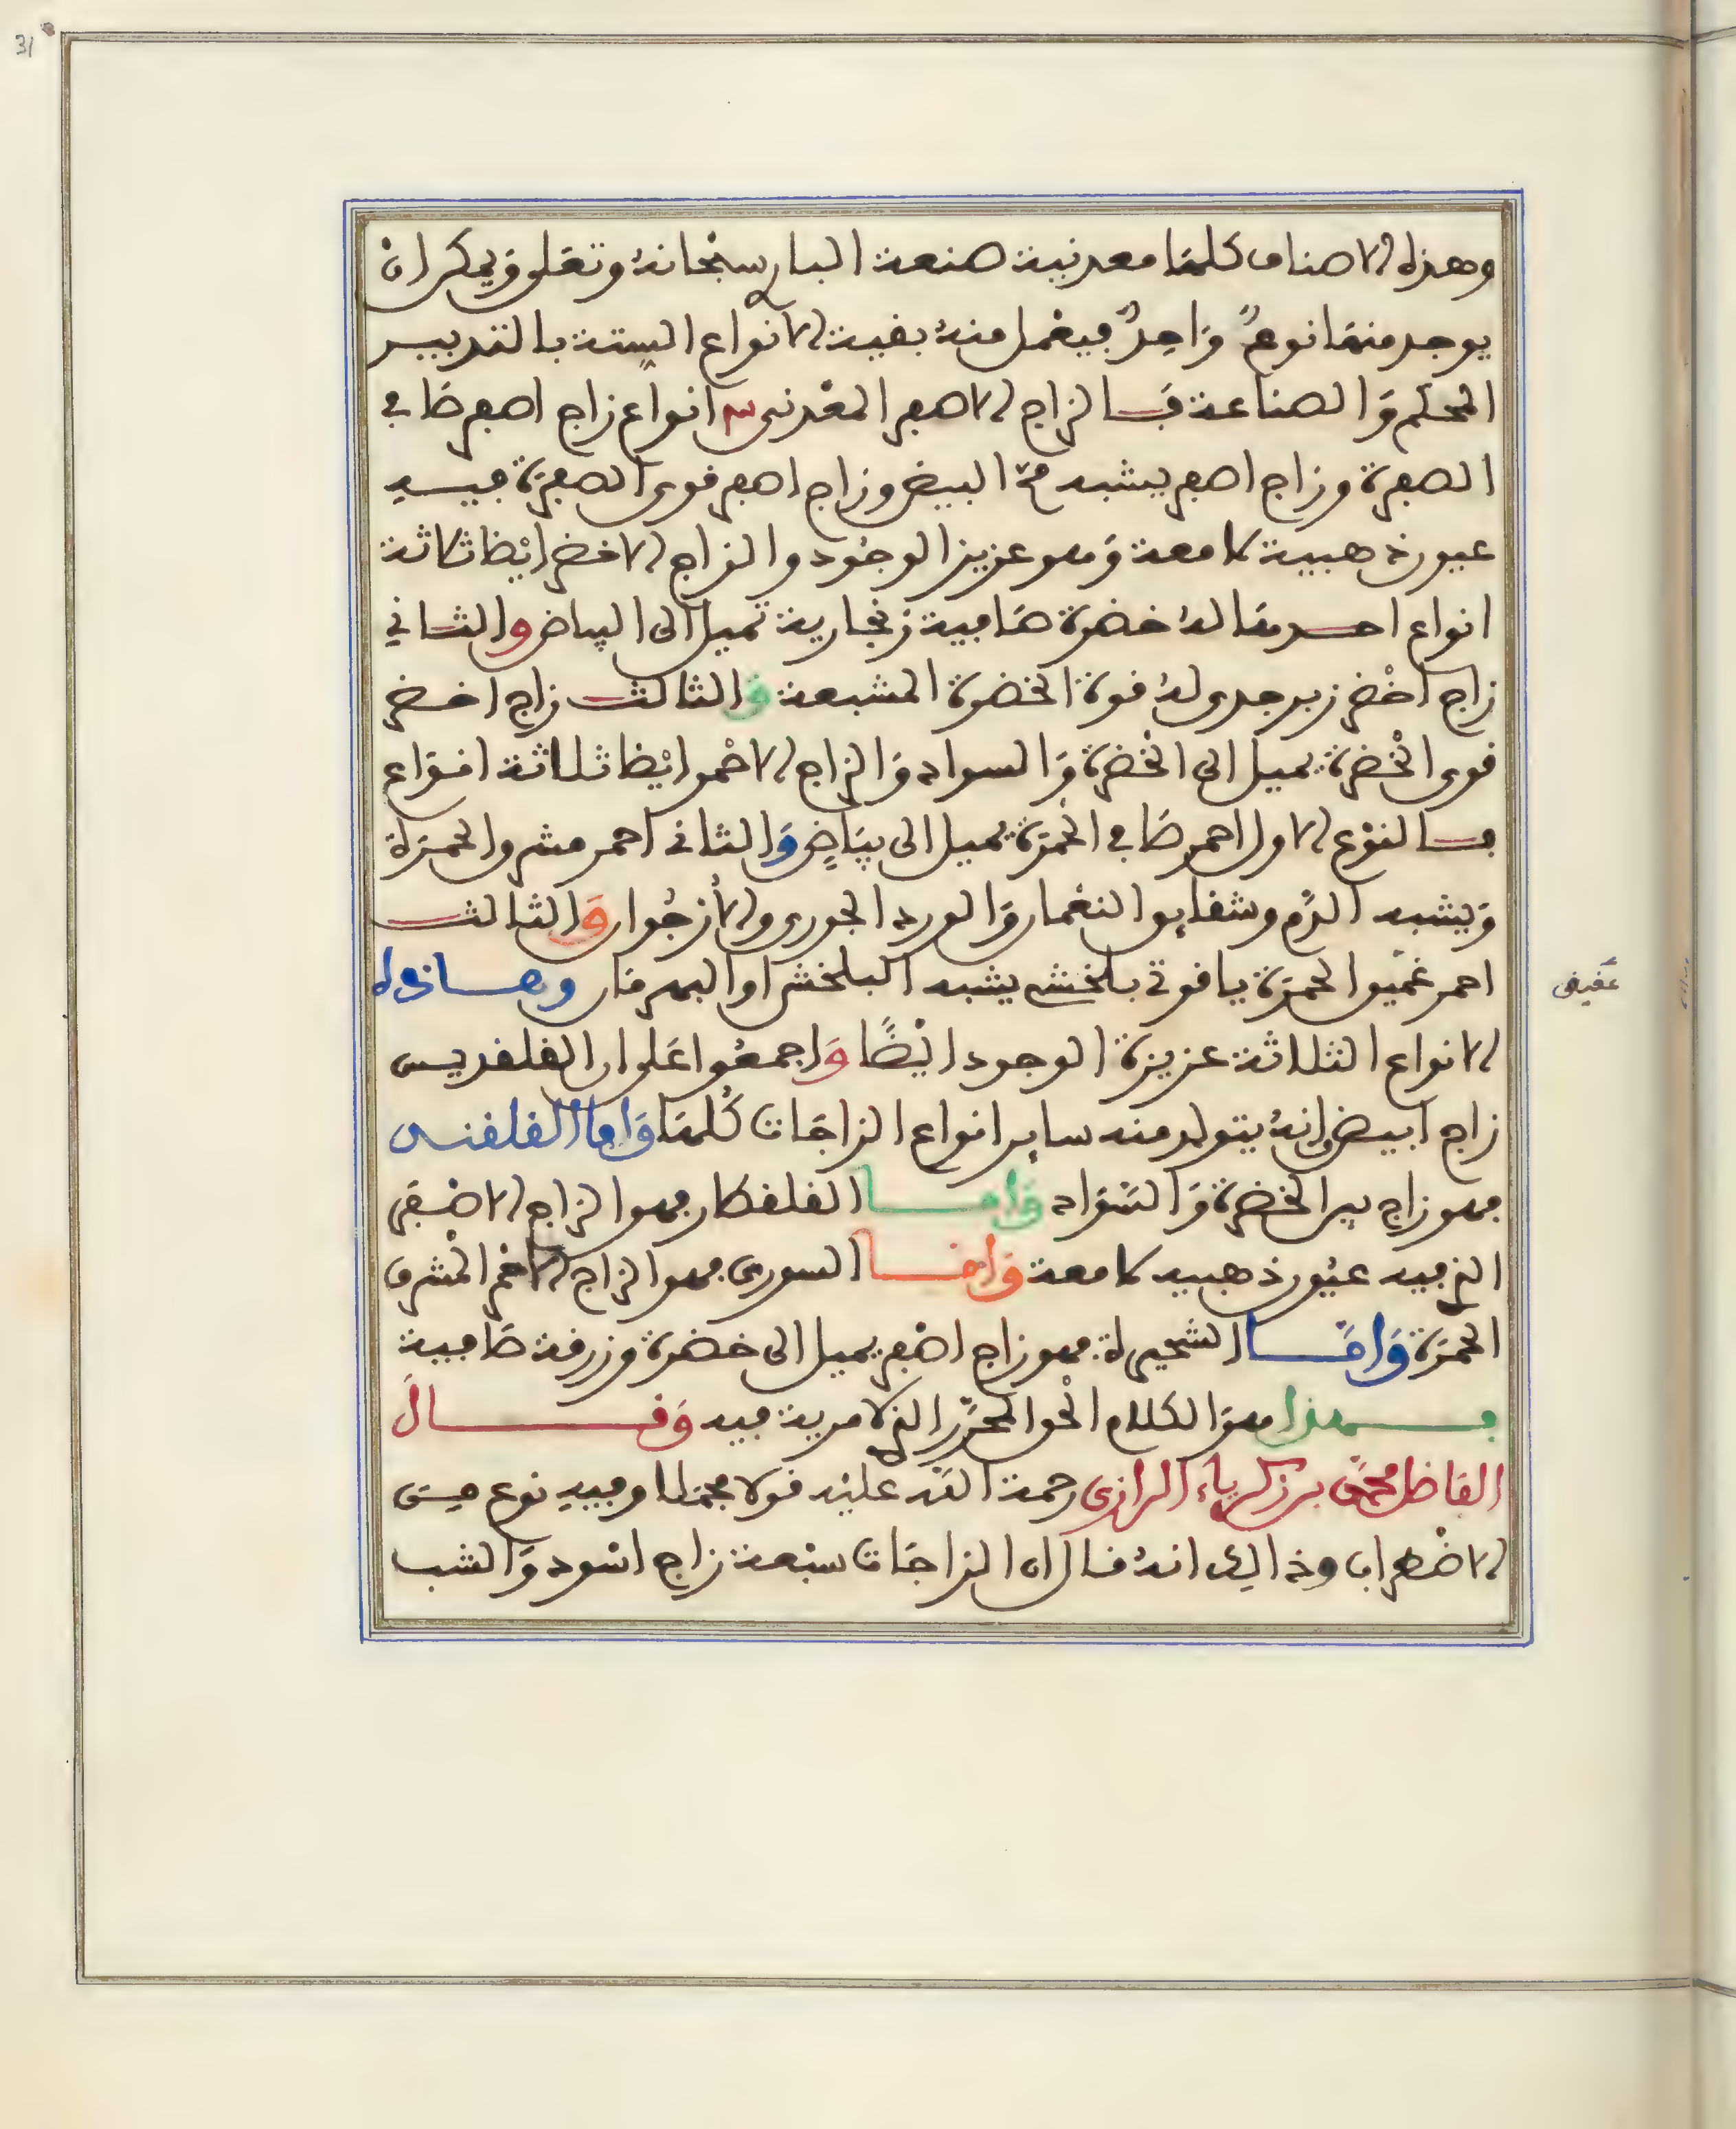 31
وهذه الاصناف كلها معدنية صنعة البار سبحانهُ وتعلى ويمكن ان
يوجد منها نوعٌ واحدٌ فيعمل منهُ بقية الانواع الستة بالتدبير
المحكم والصناعة فالزاج الاصفر المعدنى ٣ انواع زاج اصفر صافي
الصفرة وزاج اصفر يشبه مح البيض وزاج اصفر قوى الصفرة فيه
عيون ذهبية لامعة وهو عزيز الوجود والزاج الاخضر ايْظا ثلاثة
انواع احدها لهُ خضرة صافية زنجارية تميل الى البياض والثاني
زاج اخْضر زبرجدى لهُ قوة الخضرة المشبعة والثالث زاج اخضر
قوى الخْضرة يميل الى الخْضرة والسواد والزاج الاحْمر ايْظا ثلاثة انواع
فالنوْع الاول احمر صافي الحمْرة يميل الى بياضٍ والثاني احمر مشرق الحمرة
ويشبه الدّم وشقايق النعْمان والورد الجورى والأرْجُوان والثالث
احمر عميق الحمرة ياقوتي بلخشي يشبه البلخش او البهرمان وهاذه
الانواع الثلاثة عزيزة الوجود ايْضًا واجمعُوا على ان القلقديس
زاج ابيض وانهُ يتولد منه ساير انواع الزاجات كُلها واما القلقنس
فهو زاج بين الخضرة والسّواد واما القلقطار فهو الزاج الاصْفر
الذي فيه عيُون ذهبيه لامعة واما السورى فهو الزاج الاحْمر المشرق
الحمرة وامّا الشحيرة فهو زاج اصْفر يميل الى خضرة وزرقة صافية
فهذا هو الكلام الحْق المحرّر الذي لا مرية فيه وقال
الفاضل محمد بن زكرياء الرازى رحمة الله عليْه قولا مجملا وفيهِ نوع من
الاضْطراب وذالك انهُ قال ان الزاجات سبْعة زاج اسْود والشب
عَقيقى